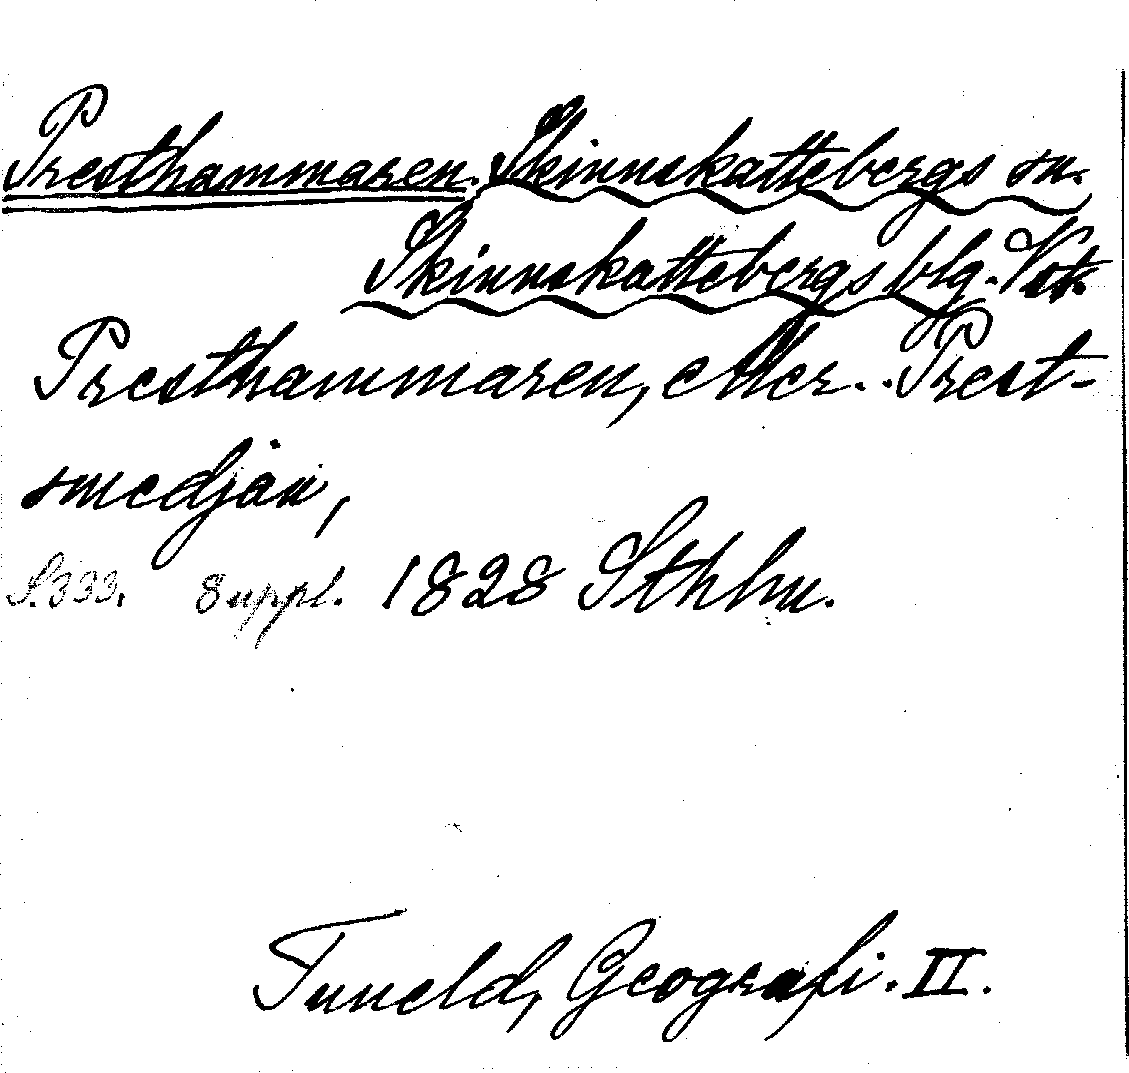 Presthammaren. Skinnskattebergs sn.
Skinnskattebergs blg. Vstm.
Presthammaren, eller .. Prest-
smedjan,
S. 333. 8 uppl. 1828 Sthlm.
Tuneld, Geografi. II.